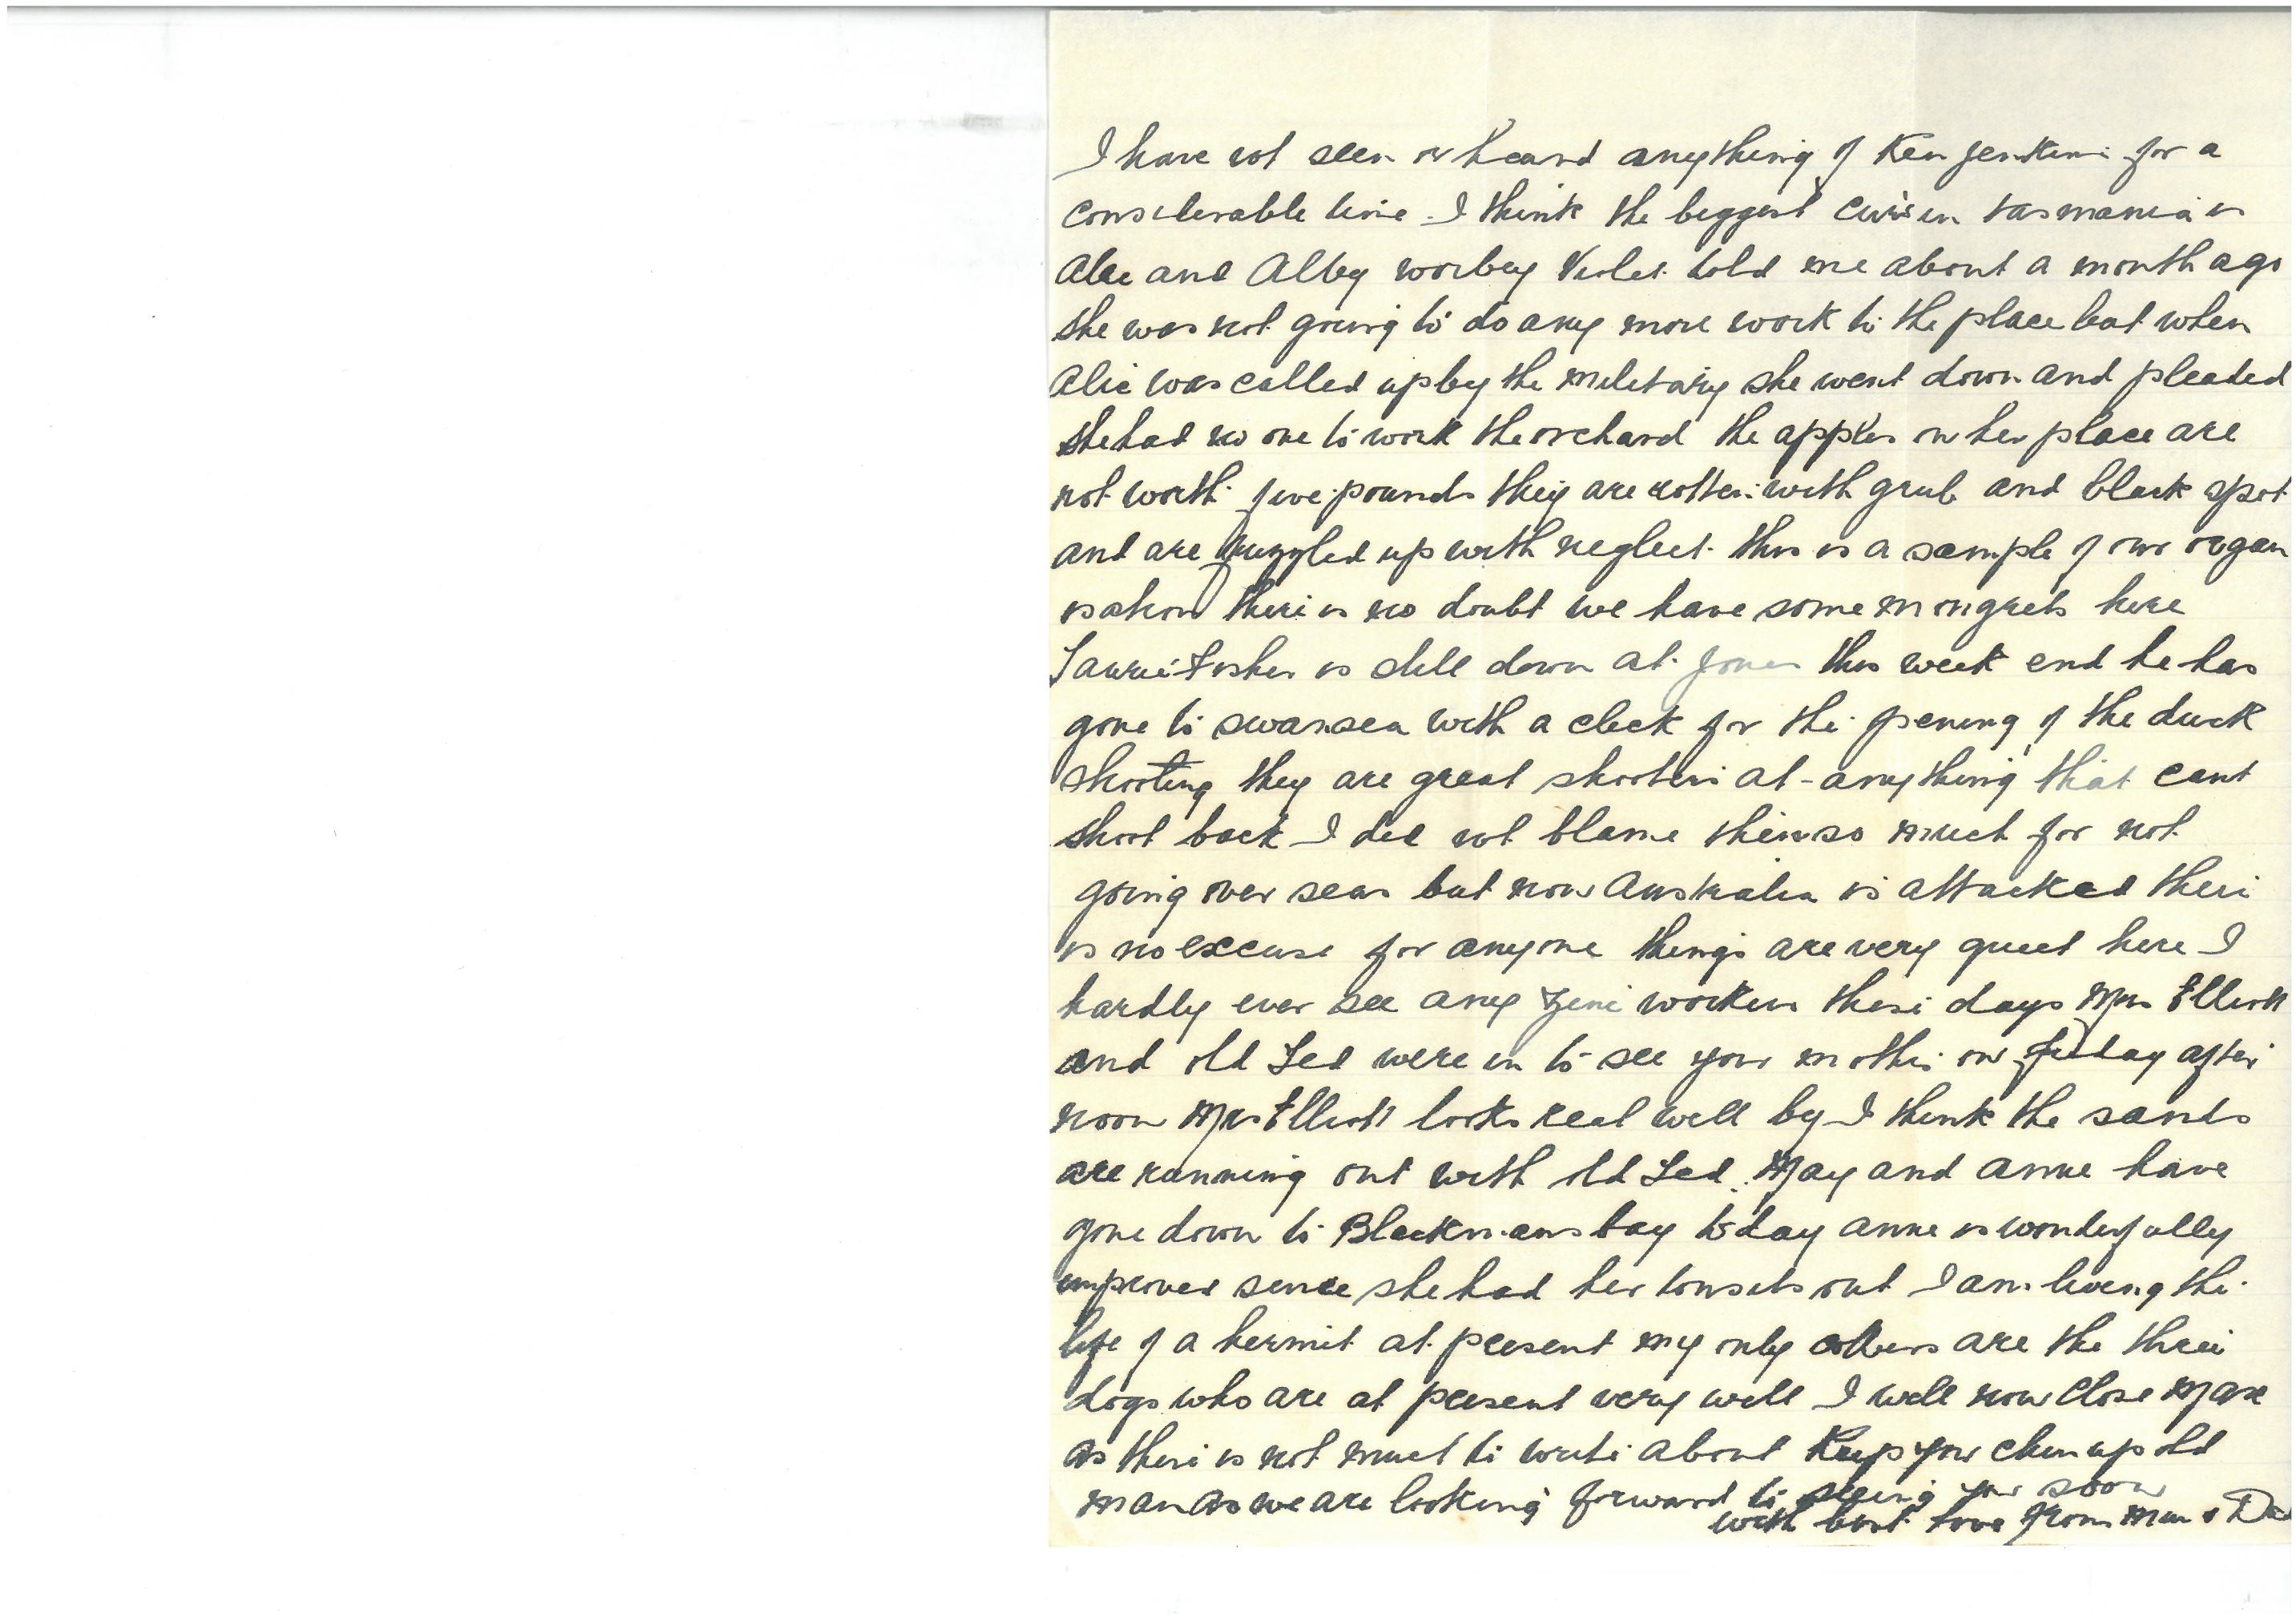 I have not seen or heard anything of Ken Jenkins for a
considerable time. I think the biggest in tasmania is
and Alby worbey Violet told me about a month ago
she was not going to do any more work to the place but when
Alic was called up by the military she went down and pleaded
she had no one to work the orchard the apples on her place are
not worth five pounds they are rotten with grub and black spot
and are up with neglect. this is a sample of our organ
isation there is no doubt we have some mongrels here
Laurie Fisher is still down at Jones this week end he has
gone to swansea with a click for the opening of the duck
shooting they are great shooters at - anything that cant
shoot back I did not blame them so much for not
going over seas but now Australia is attacked there
is no excuse for anyone things are very quiet here I
hardly ever see any Zinc workers these days Mrs Elliott
and old Ted were in to see your mother on friday after
noon Mrs Elliott looks real well by I think the sands
are running out with old Ted. May and anne have
gone down to Blackmans bay to day anne is wonderfully
improved since she had her tonsils out I am living the
life of a hermit at present my only are the three
dogs who are at present very well I will now close Max
as there is not much to write about Keep your chin up old
man as we are looking forward to seeing you soon
with best love from Mum & Dad